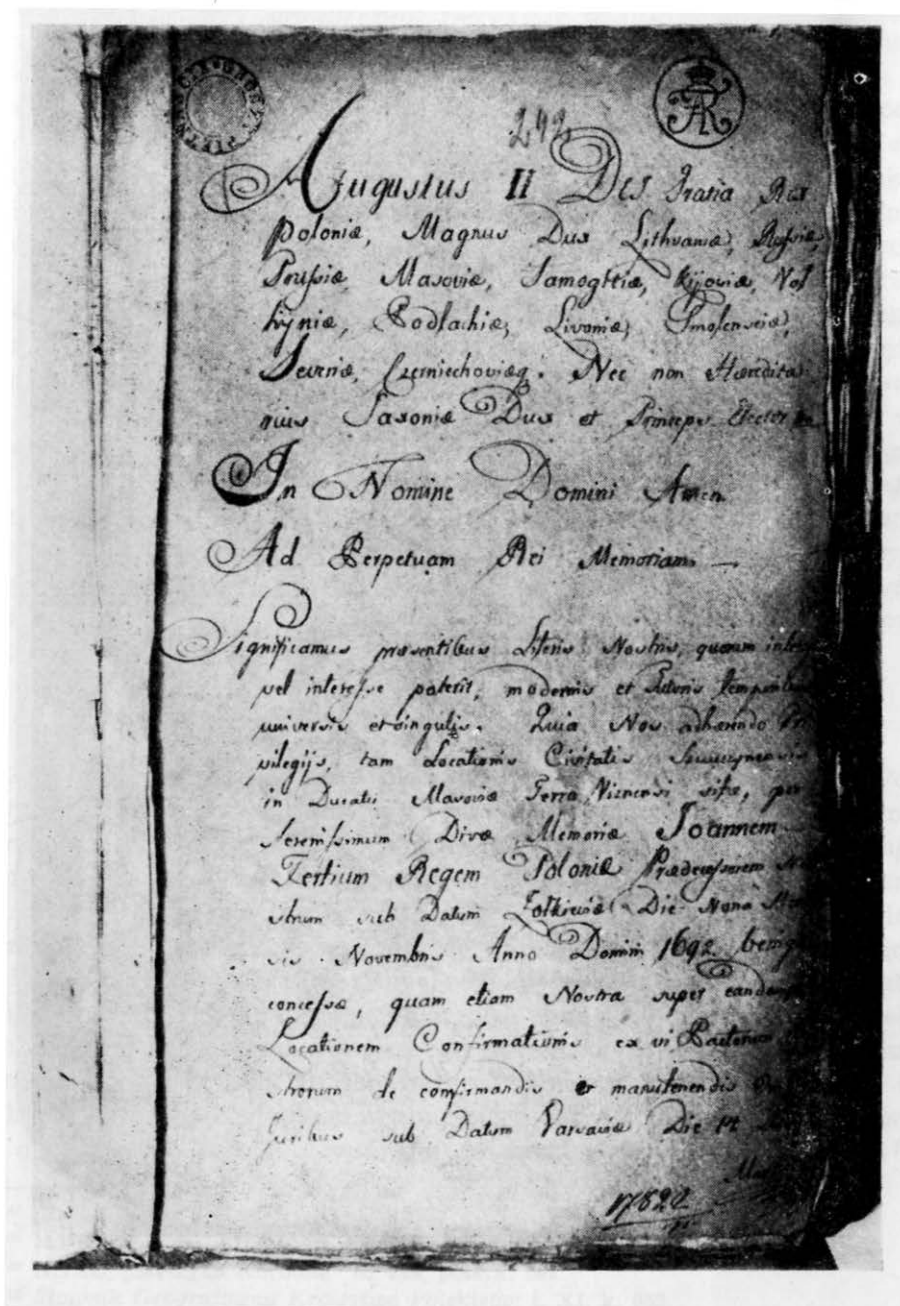 292
AR
Augustus II Dei Gratia Rex
Poloniæ, Magnus Dux Lithvaniæ, Russiæ,
Prussiæ, Masoviæ, Samogitiæ, Kijoviæ, Vol
hyniæ, Podlachiæ, Livoniæ, Smolensciæ,
Severiæ, Czerniechoviæq. Nec non Hæredita
rius Saxoniæ Dux et Princeps Elector
In Nomine Domini Amen
Ad Perpetuam Rei Memoriam
Significamus præsentibus Literis Nostris, quorum
vel interesse poterit, modernis et futuris temporibus
universis et singulis. Quia Nos adhærendo
vilegijs, tam Locationis Civitatis
in Ducatu Masoviæ Terra sitæ, per
Serenissimum Divæ Memoriæ Joannem
Tertium Regem Poloniæ Prædecessorem
strum sub Datum Zolkieviæ Die Nona
sis Novembris Anno Domini 1692
concessæ, quam etiam Nostra super eandem
Locationem Confirmationis ex vi Pactorum
strorum de confirmandis et manutenendis
Juribus sub Datum Varsaviæ Die 14
17822